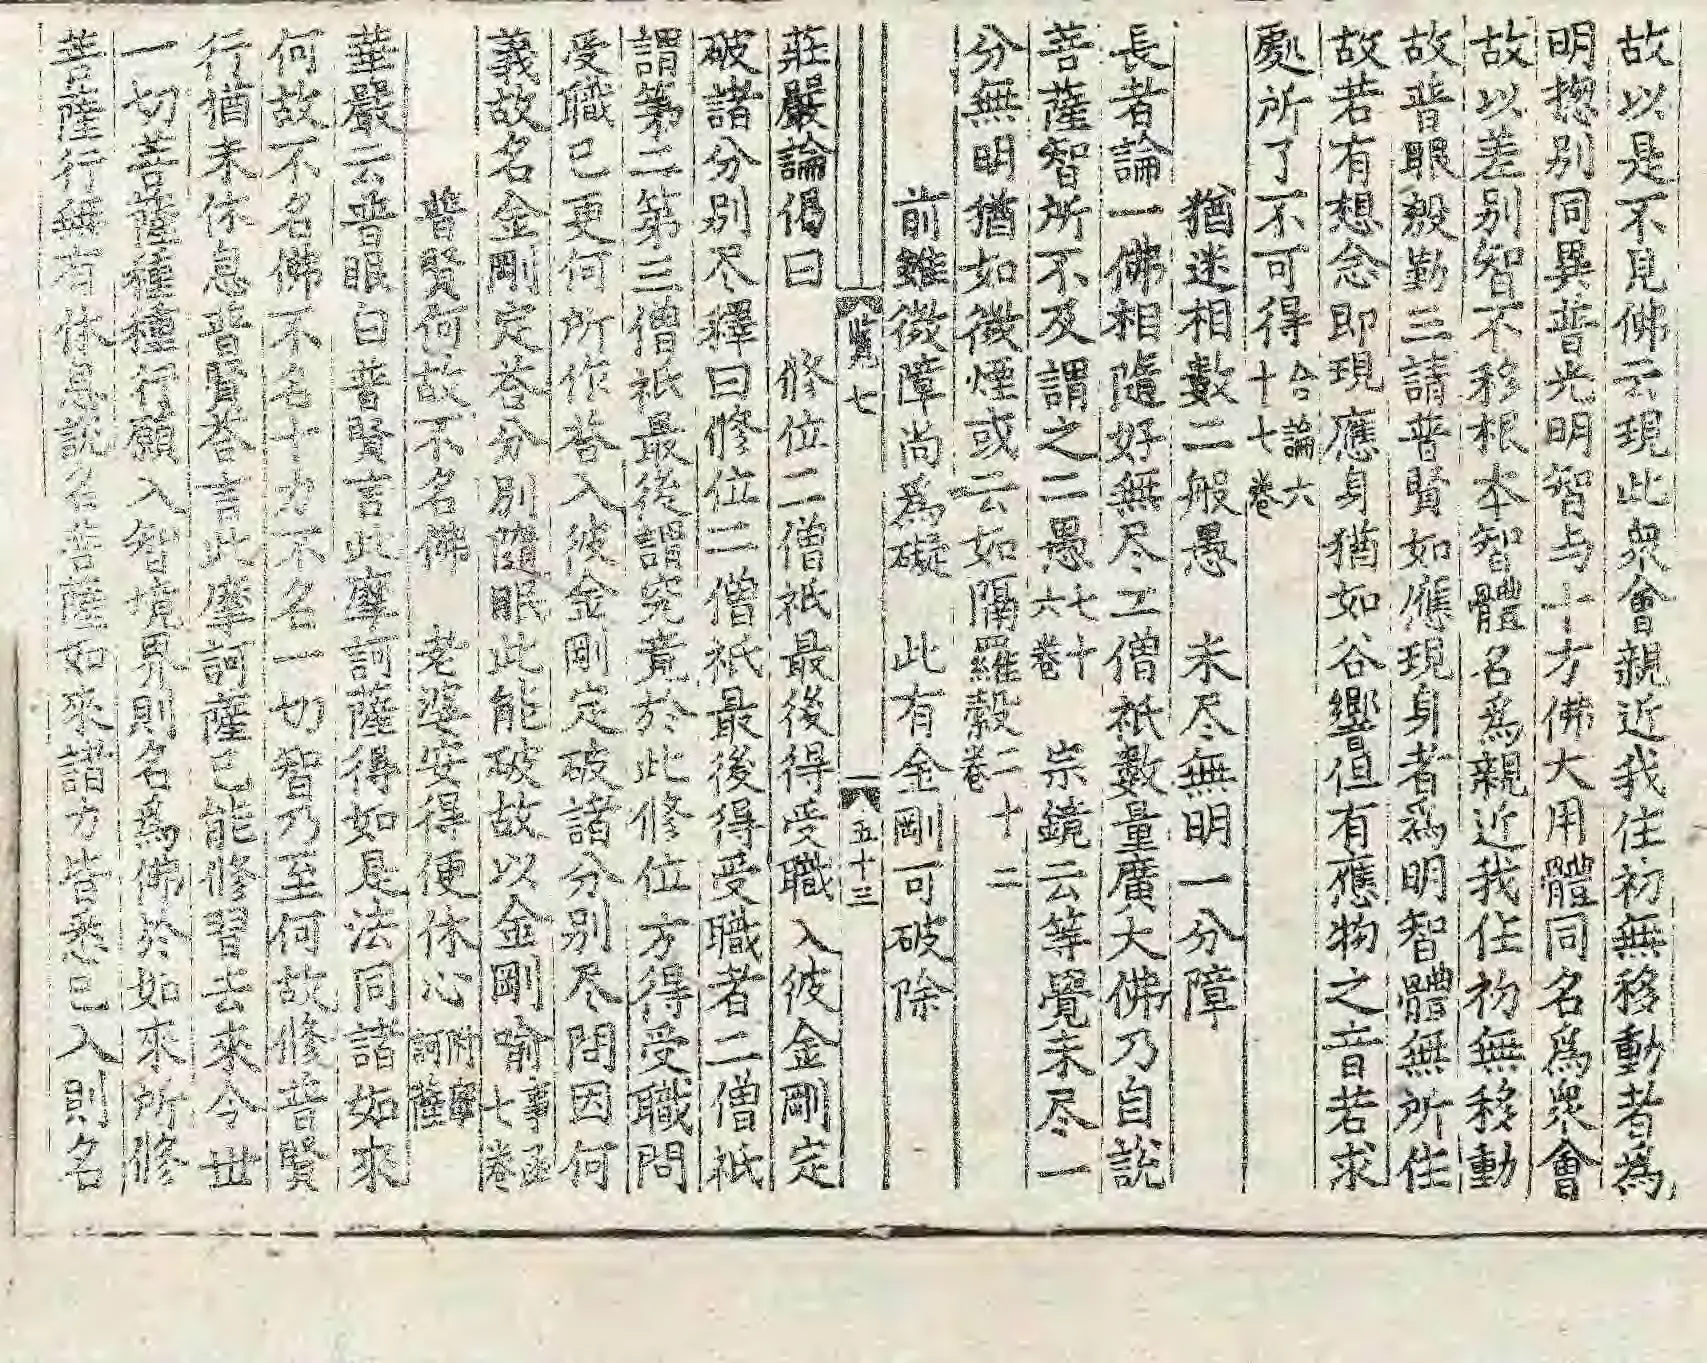 故以是不見佛云現此衆會親近我住初無移動者為
明揔别同異普光明智与十方佛大用體同名爲衆會
故以差别智不移根本智體名爲親近我住初無移動
故普眼殷勤三請普賢如應現身者爲明智體無所住
故若有想念即現應身猶如谷響但有應物之音若求
處所了不可得合論六十七卷
猶迷相數二般愚　未尽無明一分障
長者論一佛相隨好無尽二僧祇數量廣大佛乃自說
菩薩智所不及謂之二愚七十六卷　宗鏡云等覺未尽一
分無明猶如微煙或云如隔羅縠二十二卷
前雖微障尚爲礙　此有金剛可破除
覽七　五十三
莊嚴論偈曰　修位二僧祇　最後得受職　入彼金剛定
破諸分别尽釋曰修位二僧祇最後得受職者二僧祇
謂第二第三僧祇最後謂究竟於此修位方得受職問
受職已更何所作荅入彼金剛定破諸分别尽問因何
義故名金剛定荅分別隨眠此能破故以金剛喻事函七卷
普賢何故不名佛　老婆安得便休心附摩訶薩
華嚴云普眼白普賢言此摩訶薩得如是法同諸如來
何故不名佛不名十力不名一切智乃至何故修普賢
行猶未休息普賢荅言此摩訶薩已能修習去來今世
一切菩薩種種行願入智境界則名爲佛於如來所修
菩薩行無有休息說名菩薩如來諸力皆悉已入則名